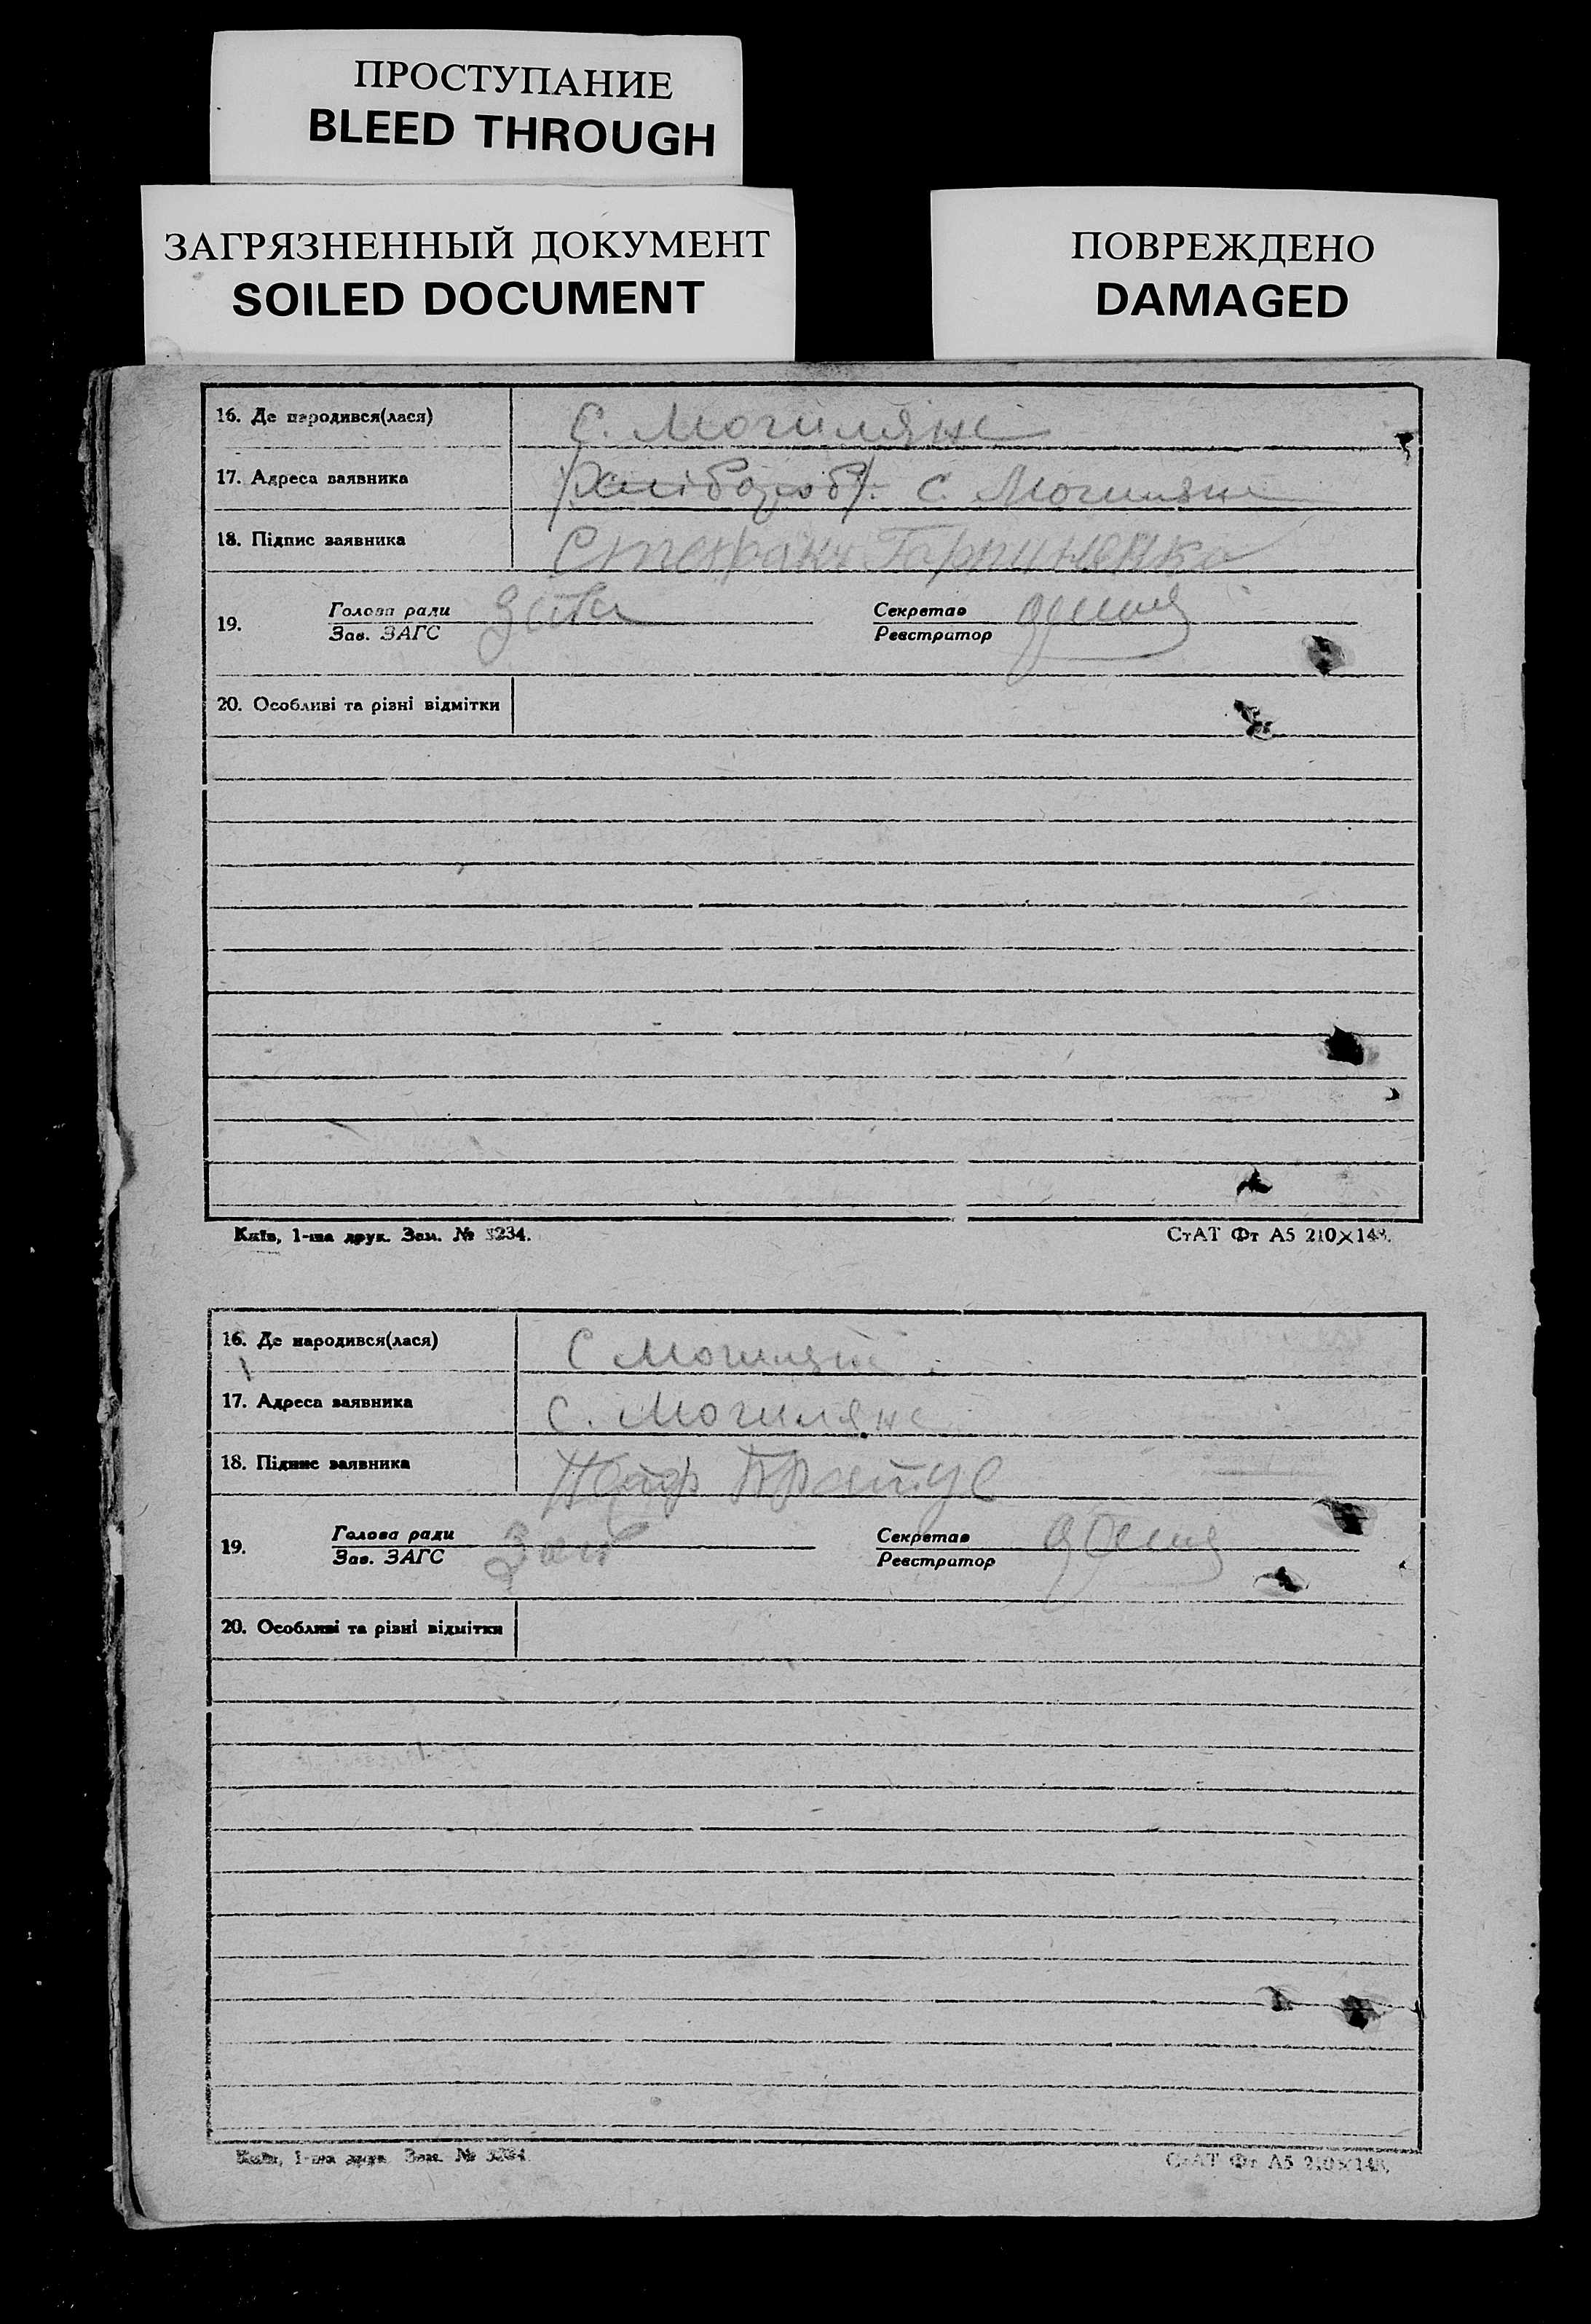 ПРОСТУПАНИЕ
BLEED THROUGH
ЗАГРЯЗНЕННЫЙ ДОКУМЕНТ
SOILED DOCUMENT
ПОВРЕЖДЕНО
DAMAGED
16. Де народився(лася) С. Могиляни
17. Адреса заявника с. Могиляни
18. Підпис заявника
19. Голова ради Секретар
Зав. ЗАГС Реєстратор
20. Особливі та різні відмітки
Київ, 1-ша друк. Зам. № 3234. СтАТ Фт А5 210×148.
16. Де народився(лася) С Могиляни
17. Адреса заявника с. Могиляни
18. Підпис заявника
19. Голова ради Секретар
Зав. ЗАГС Реєстратор
20. Особливі та різні відмітки
Київ, 1-ша друк. Зам. № 3234. СтАТ Фт А5 210×148.